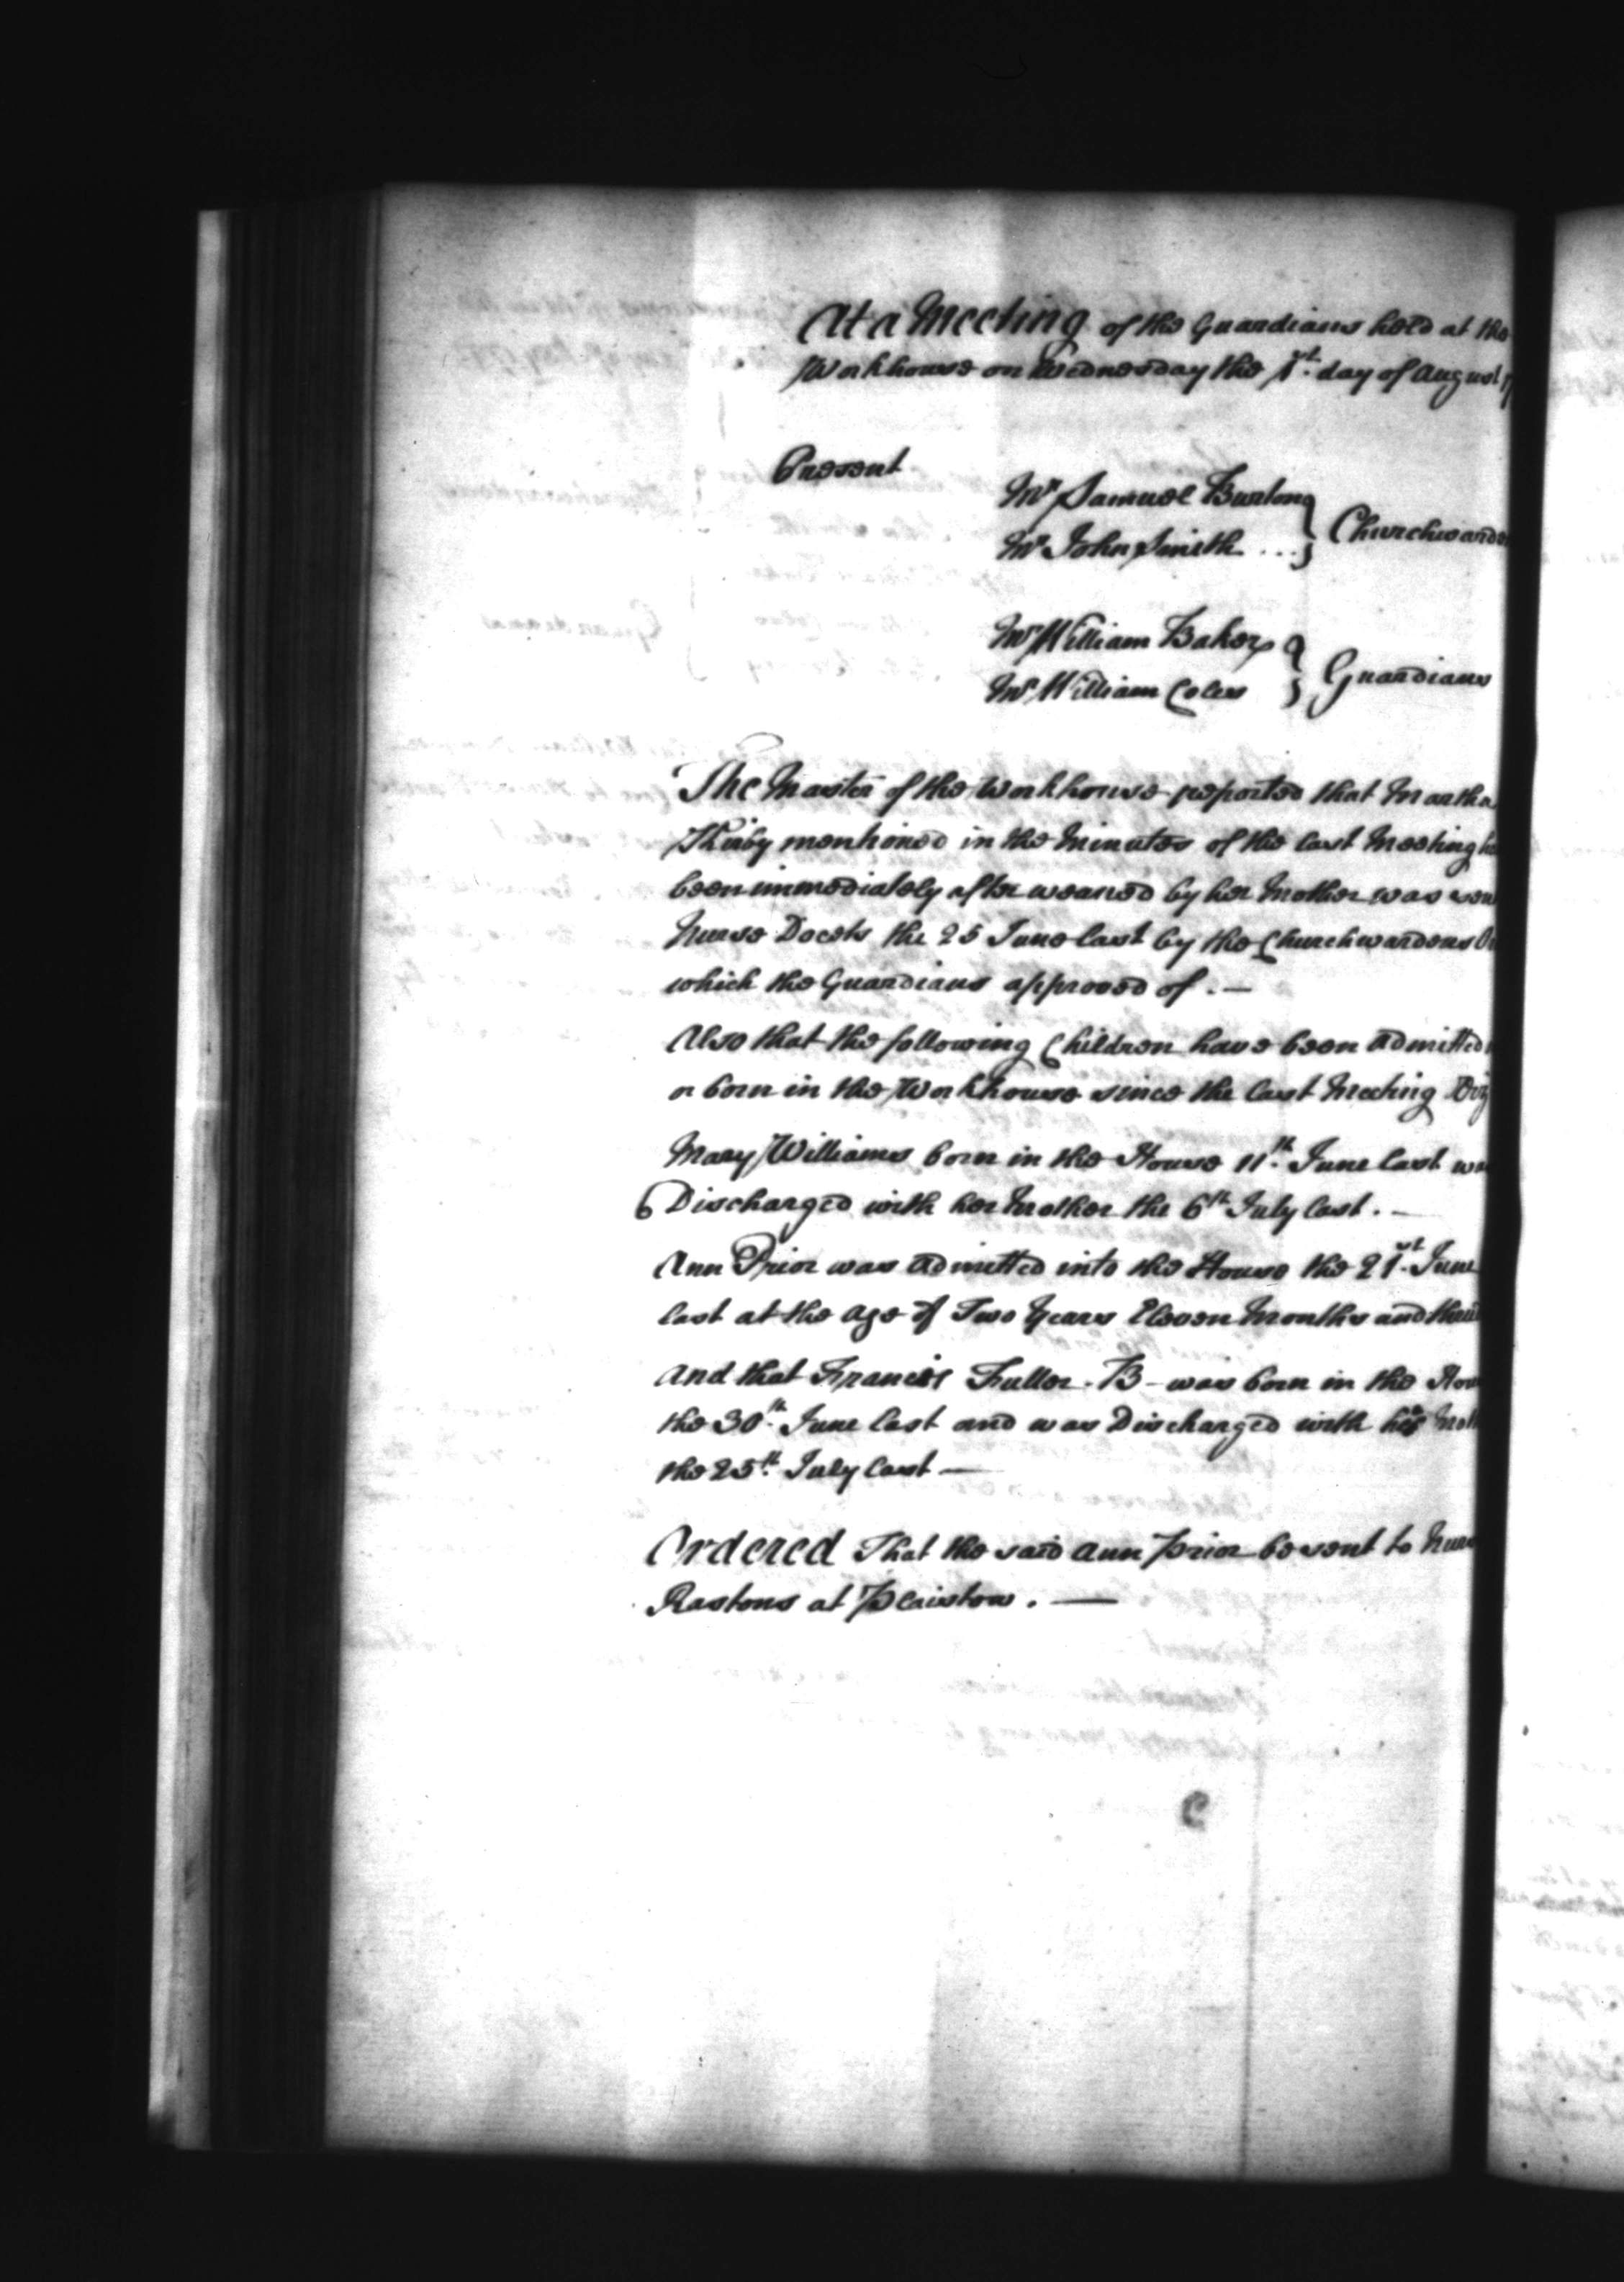 At a Meeting of the Guardians held at the
Workhouse on Wednesday the 1st. day of August
Present
Mr Samuel Burton
Mr John Smith ...
Churchwarde
Mr William Baker
Mr William Coles
Guardians
The Master of the Workhouse reported that Martha
Kirby mentioned in the Minutes of the last Meeting
been immediately after weaned by her Mother was
Nurse Docets the 25 June last by the Churchwardens
which the Guardians approved of . —
Also that the following Children have been admitted
or born in the Workhouse since the last Meeting Viz
Mary Williams born in the House 11th. June last
Discharged with her Mother the 6th July last . —
Ann Prior was admitted into the House the 21st. June
last at the age of Two Years Eleven Months and
and that Francis Fuller . B – was born in the
the 30th. June last and was Discharged with his
the 25th. July last —
Ordered That the said Ann Prior be sent to
Rastons at Plaistow . —